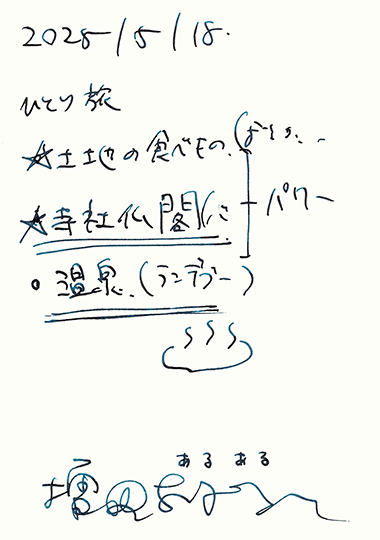 2025/5/18.
ひとり旅
★土地の食べもの.
★寺社仏閣
パワー
• 温泉.(ランデブー)
あるある